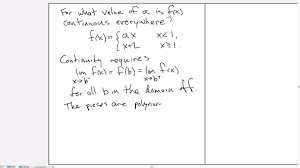 For what value of a is f(x)
continuous everywhere?
f(x) = { ax x<1,
x+2 x≥1.
Continuity requires
lim f(x) = f(b) = lim f(x)
x→b⁻ x→b⁺
for all b in the domain of f.
The pieces are polynom